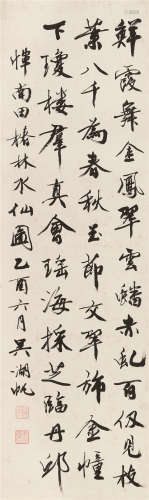 鮮霞舞金鳳翠雲蟠赤虬百仭見枝
葉八千為春秋玉節文罕斾金幢
下瓊樓羣真會瑤海採芝臨丹邱
惲南田椿林水仙圖乙酉六月吳湖帆